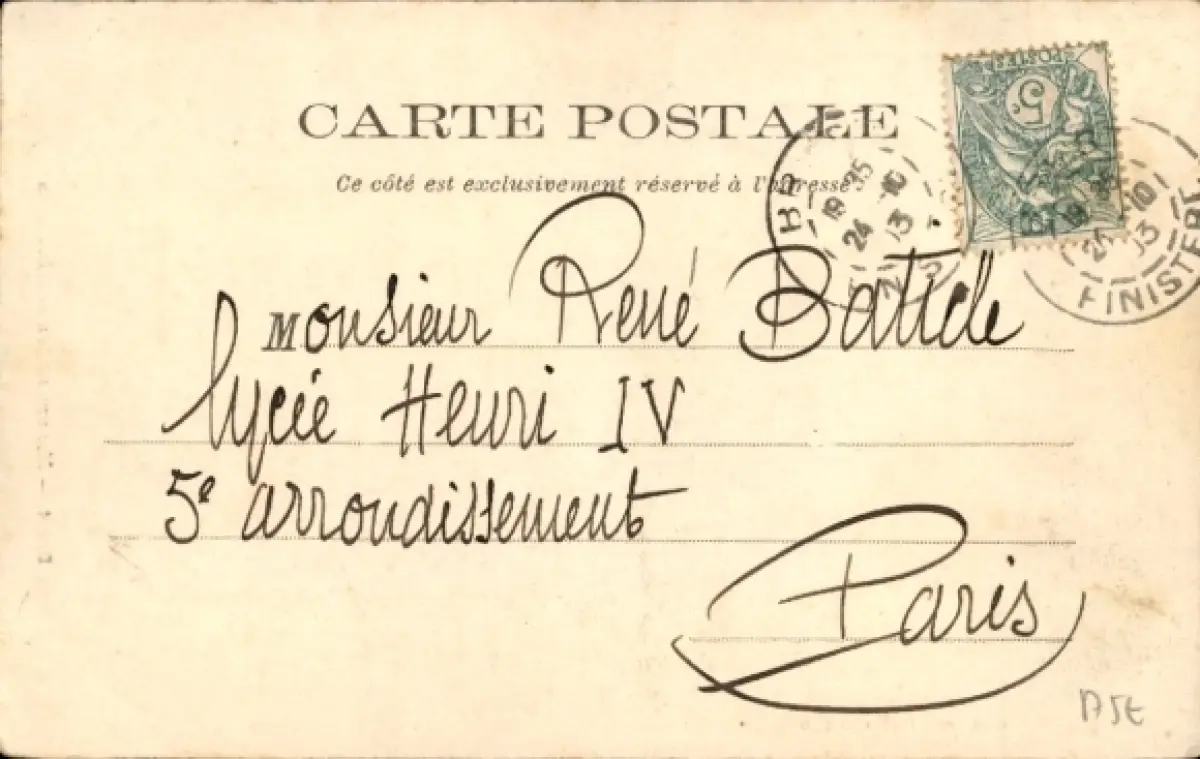 CARTE POSTALE
Ce côté est exclusivement réservé à l'adresse.
POSTES
5c
BR
19 35
24 - 10
03
FINISTERE
Monsieur René
lycée Henri IV
5e arrondissement
Paris